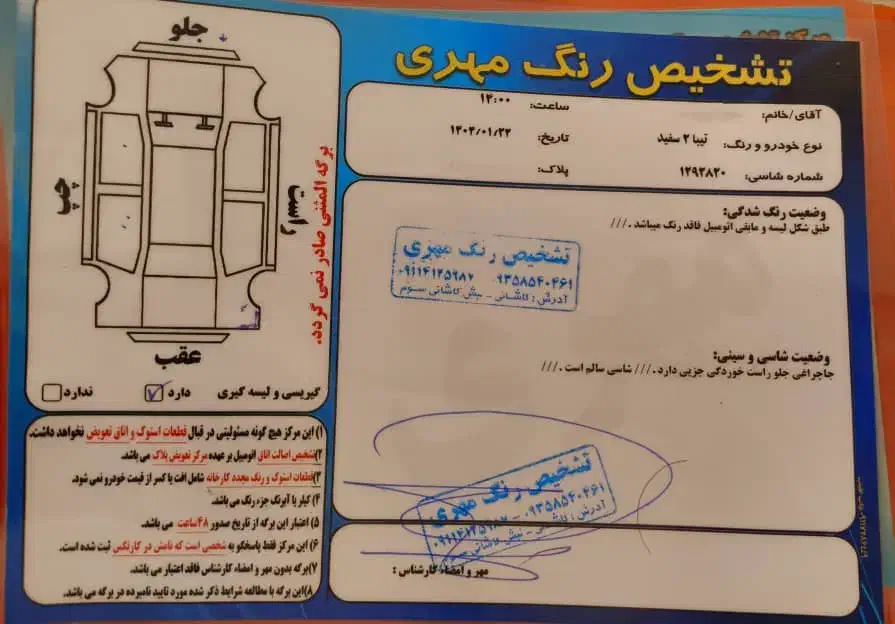 تشخیص رنگ مهری
آقای/خانم:
ساعت: ۱۴:۰۰
نوع خودرو و رنگ: تیبا ۲ سفید
تاریخ: ۱۴۰۴/۰۱/۲۳
شماره شاسی: ۱۲۹۳۸۲۰
پلاک:
وضعیت رنگ شدگی:
طبق شکل لیسه و مابقی اتومبیل فاقد رنگ میباشد .///
تشخیص رنگ مهری
۰۹۳۵۸۵۴۰۴۶۱ ۰۹۱۱۴۱۲۵۹۸۷
آدرش : کاشانی - نبش کاشانی سوم
وضعیت شاسی و سینی:
جاچراغی جلو راست خوردگی جزیی دارد./// شاسی سالم است .///
تشخیص رنگ مهری
۰۹۳۵۸۵۴۰۴۶۱ - ۰۹۱۱۴۱۲۵۹۸۷
آدرش : کاشانی - نبش کاشانی سوم
مهر و امضاء کارشناس :
جلو
چپ
راست
عقب
برگه المثنی صادر نمی گردد.
گیریسی و لیسه گیری دارد ندارد
۱) این مرکز هیچ گونه مسئولیتی در قبال قطعات استوک و اتاق تعویض نخواهد داشت.
۲)تشخیص اصالت اتاق اتومبیل بر عهده مرکز تعویض پلاک می باشد.
۳)قطعات استوک و رنگ مجدد کارخانه شامل افت یا کسر از قیمت خودرو نمی شود.
۴) کیلر یا آبرنگ جزء رنگ می باشد.
۵) اعتبار این برگه از تاریخ صدور ۴۸ ساعت می باشد.
۶) این مرکز فقط پاسخگو به شخصی است که نامش در کارتکس ثبت شده است.
۷)برگه بدون مهر و امضاء کارشناس فاقد اعتبار می باشد.
۸)این برگه با مطالعه شرایط ذکر شده مورد تایید نامبرده در برگه می باشد.